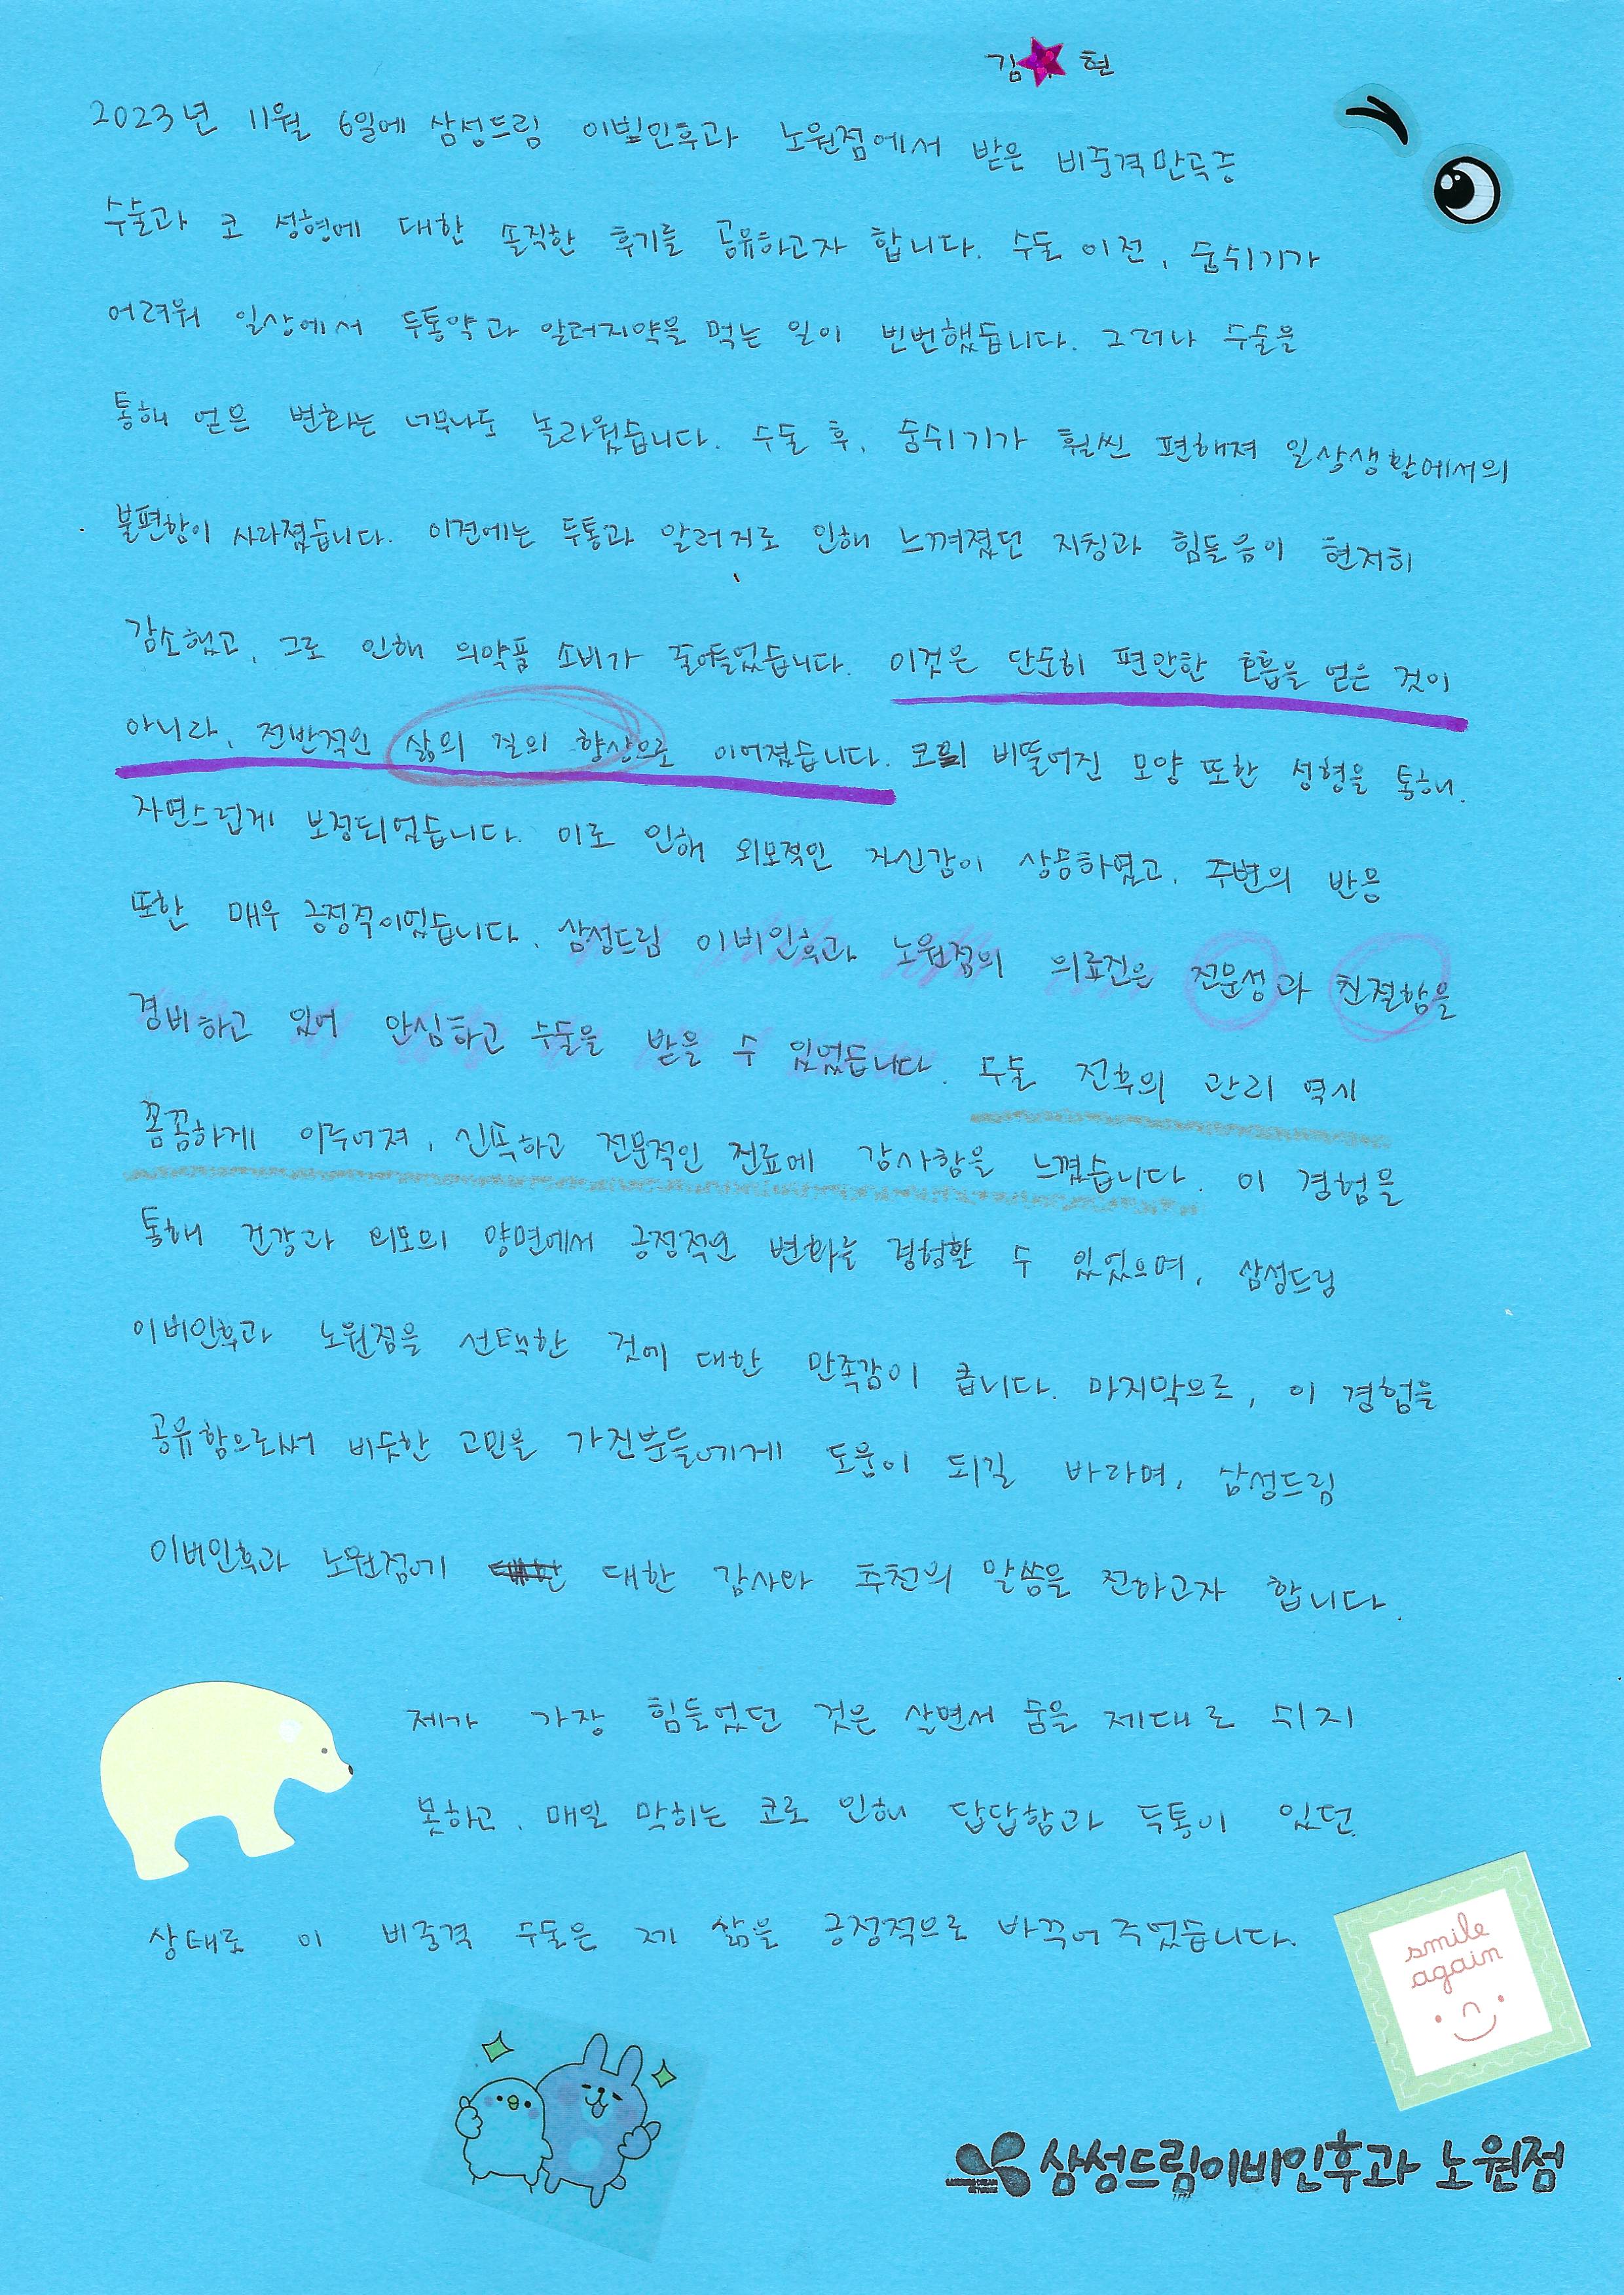 김 현
2023년 11월 6일에 삼성드림 이빈인후과 노원점에서 받은 비중격만곡증
수술과 코 성형에 대한 솔직한 후기를 공유하고자 합니다. 수술 이전, 숨쉬기가
어려워 일상에서 두통약과 알러지약을 먹는 일이 빈번했습니다. 그러나 수술을
통해 얻은 변화는 너무나도 놀라웠습니다. 수술 후, 숨쉬기가 훨씬 편해져 일상생활에서의
불편함이 사라졌습니다. 이전에는 두통과 알러지로 인해 느껴졌던 지침과 힘들음이 현저히
감소했고, 그로 인해 의약품 소비가 줄어들었습니다. 이것은 단순히 편안한 호흡을 얻은 것이
아니라, 전반적인 삶의 질의 향상으로 이어졌습니다. 코의 비뚤어진 모양 또한 성형을 통해.
자연스럽게 보정되었습니다. 이로 인해 외모적인 자신감이 상승하였고, 주변의 반응
또한 매우 긍정적이었습니다. 삼성드림 이비인후과 노원점의 의료진은 전문성과 친절함을
겸비하고 있어 안심하고 수술을 받을 수 있었습니다. 수술 전후의 관리 역시
꼼꼼하게 이루어져, 신속하고 전문적인 진료에 감사함을 느꼈습니다. 이 경험을
통해 건강과 외모의 양면에서 긍정적인 변화를 경험할 수 있었으며, 삼성드림
이비인후과 노원점을 선택한 것에 대한 만족감이 큽니다. 마지막으로, 이 경험을
공유함으로써 비슷한 고민을 가진분들에게 도움이 되길 바라며, 삼성드림
이비인후과 노원점에 대한 감사와 추천의 말씀을 전하고자 합니다.
제가 가장 힘들었던 것은 살면서 숨을 제대로 쉬지
못하고, 매일 막히는 코로 인해 답답함과 두통이 있던
상태로 이 비중격 수술은 제 삶을 긍정적으로 바꾸어 주었습니다.
smile
again
삼성드림이비인후과 노원점